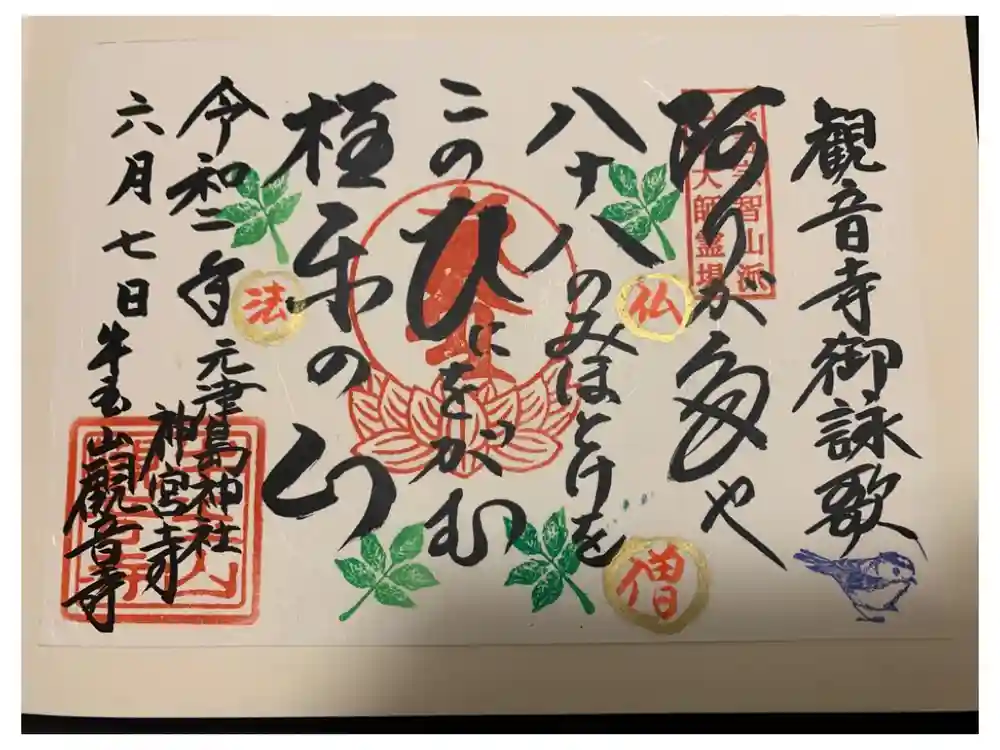 観音寺御詠歌
智山派
大師霊場
阿りが多や
八十八のみほとけを
このひにをがむ
極楽の山
仏
法
僧
令和二年
六月七日
元津島神社
神宮寺
牛玉山観音寺